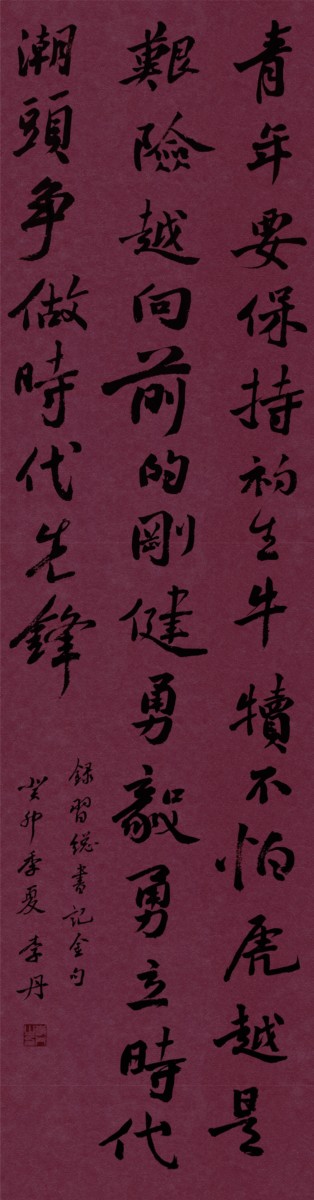 青年要保持初生牛犢不怕虎越是
艱險越向前的剛健勇毅勇立時代
潮頭争做時代先鋒
録習総書記金句
癸卯季夏李丹